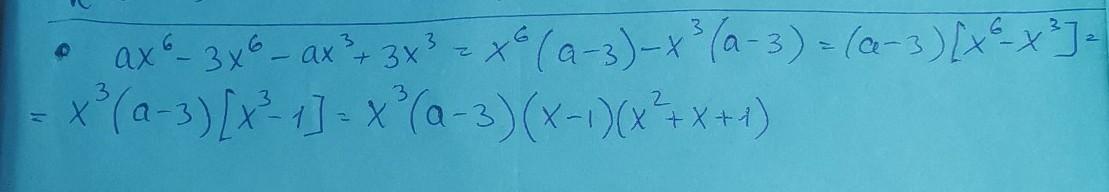 • ax⁶ - 3x⁶ - ax³ + 3x³ = x⁶(a-3) - x³(a-3) = (a-3)[x⁶-x³] =
= x³(a-3)[x³-1] = x³(a-3)(x-1)(x²+x+1)